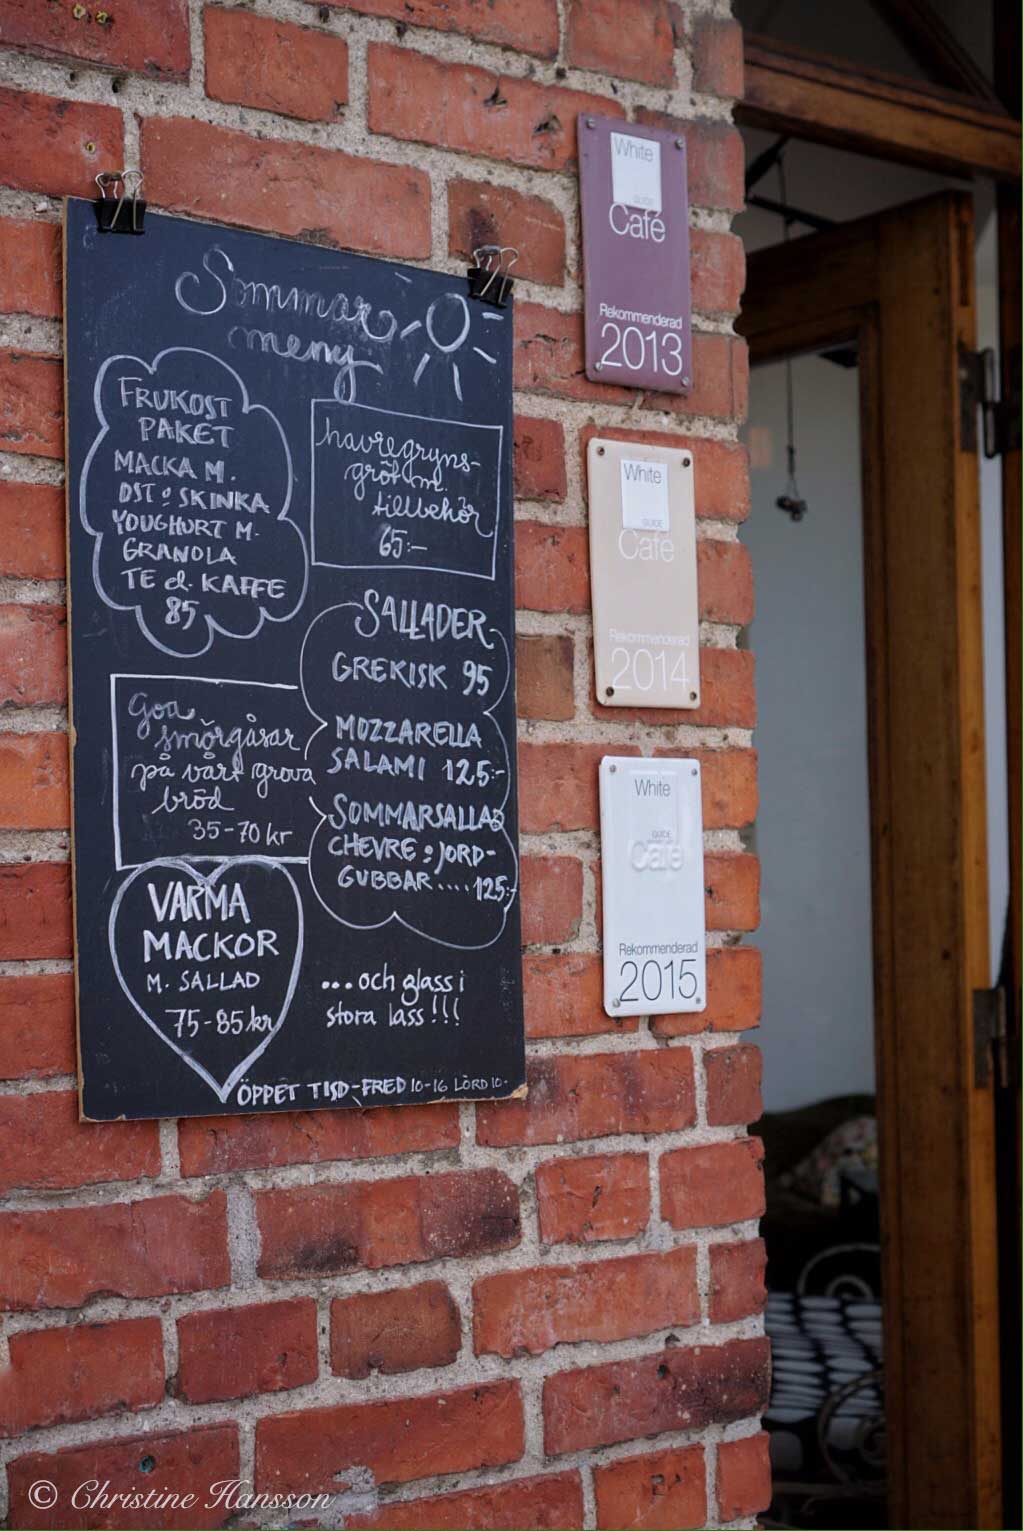 Sommar
meny
FRUKOST
PAKET
MACKA M.
OST o SKINKA
YOUGHURT M.
GRANOLA
TE el. KAFFE
85
havregryns-
gröt m.
tillbehör
65:-
SALLADER
GREKISK 95
MOZZARELLA
SALAMI 125:-
SOMMARSALLAD
CHEVRE o JORD-
GUBBAR.... 125:-
Goa
smörgåsar
på vårt grova
bröd
35-70 kr
VARMA
MACKOR
M. SALLAD
75-85 kr
...och glass i
stora lass!!!
ÖPPET TISD-FRED 10-16 LÖRD 10-
White
GUIDE
Café
Rekommenderad
2013
White
GUIDE
Café
Rekommenderad
2014
White
GUIDE
Café
Rekommenderad
2015
© Christine Hansson